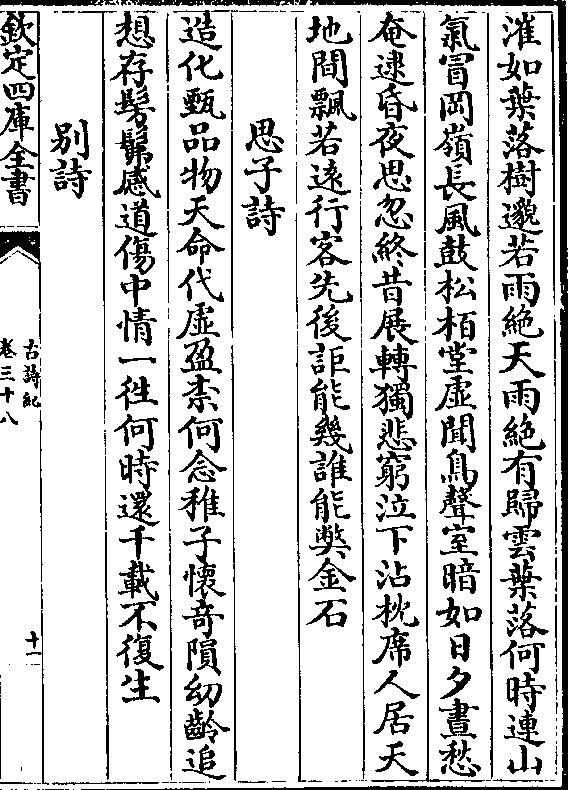 漼如葉落樹邈若雨絶天雨絶有歸雲葉落何時連山
氣冒岡嶺長風鼓松栢堂虚聞鳥聲室暗如日夕晝愁
奄逮昏夜思忽終昔展轉獨悲窮泣下沾枕席人居天
地間飄若逺行客先後詎能幾誰能弊金石
思子詩
造化甄品物天命代虚盈柰何念稚子懷竒隕幼齡追
想存髣髴感道傷中情一徃何時還千載不復生
别詩
欽定四庫全書
古詩紀
卷三十八
十一